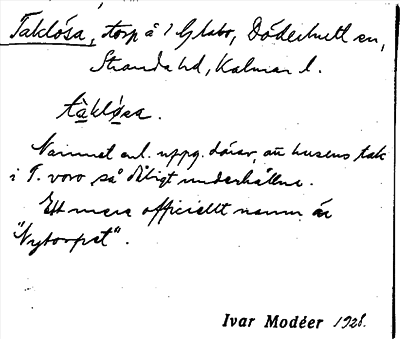 Taklósa, torp å ? Glabo, Döderhult sn,
Stranda hd, Kalmar l.
tàklǿsa.
Namnet enl. uppg. därav, att husens tak
i T. voro så dåligt underhållna.
Ett mera officiellt namn är
"Nytorpet".
Ivar Modéer 1928.